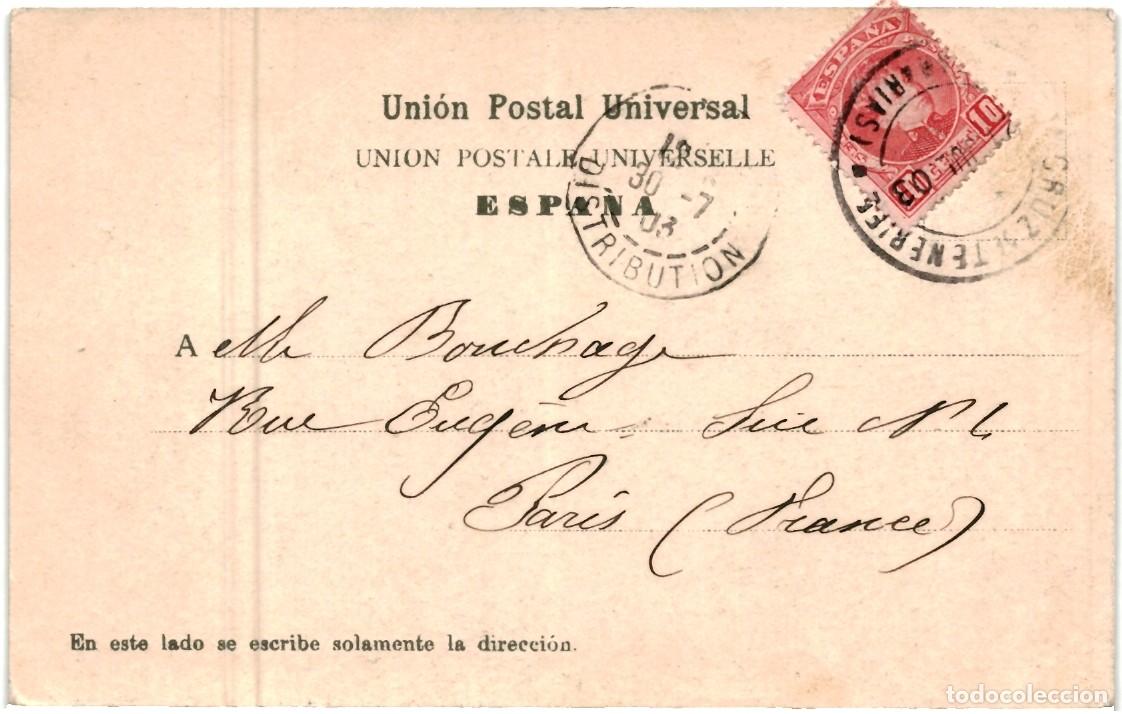 Unión Postal Universal
UNION POSTALE UNIVERSELLE
ESPAÑA
ESPAÑA
10
CRUZ DE TENERIFE
03
18
30 -7
03
DISTRIBUTION
A Mr Bouchage
Rue Eugène Sue N
Paris (France)
En este lado se escribe solamente la dirección.
todocoleccion